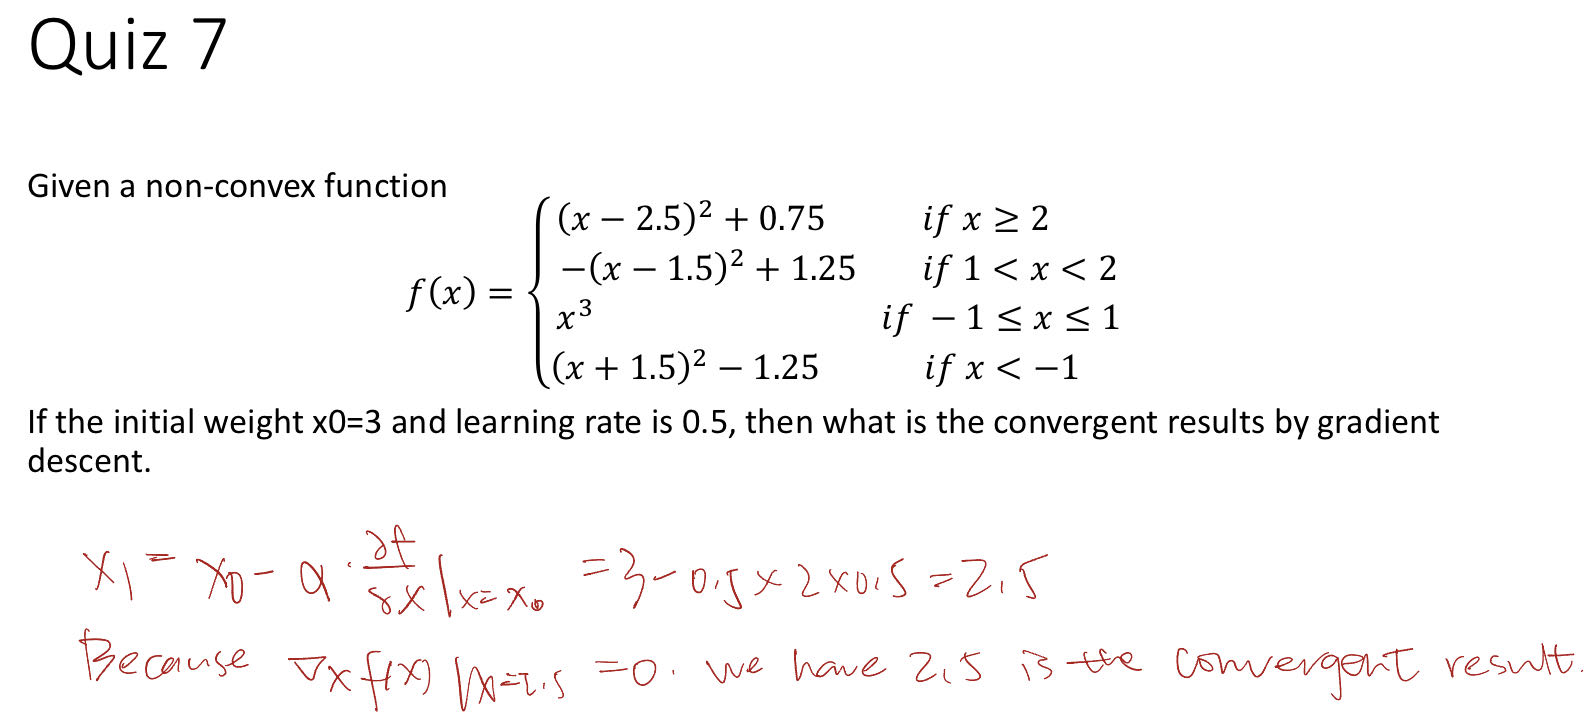 Quiz 7
Given a non-convex function
f(x) = { (x − 2.5)² + 0.75 if x ≥ 2
−(x − 1.5)² + 1.25 if 1 < x < 2
x³ if − 1 ≤ x ≤ 1
(x + 1.5)² − 1.25 if x < −1
If the initial weight x0=3 and learning rate is 0.5, then what is the convergent results by gradient
descent.
x₁ = x₀ − α · ∂f/∂x |x=x₀ = 3 − 0.5 × 2 × 0.5 = 2.5
Because ∇x f(x) |x=2.5 = 0. we have 2.5 is the convergent result.